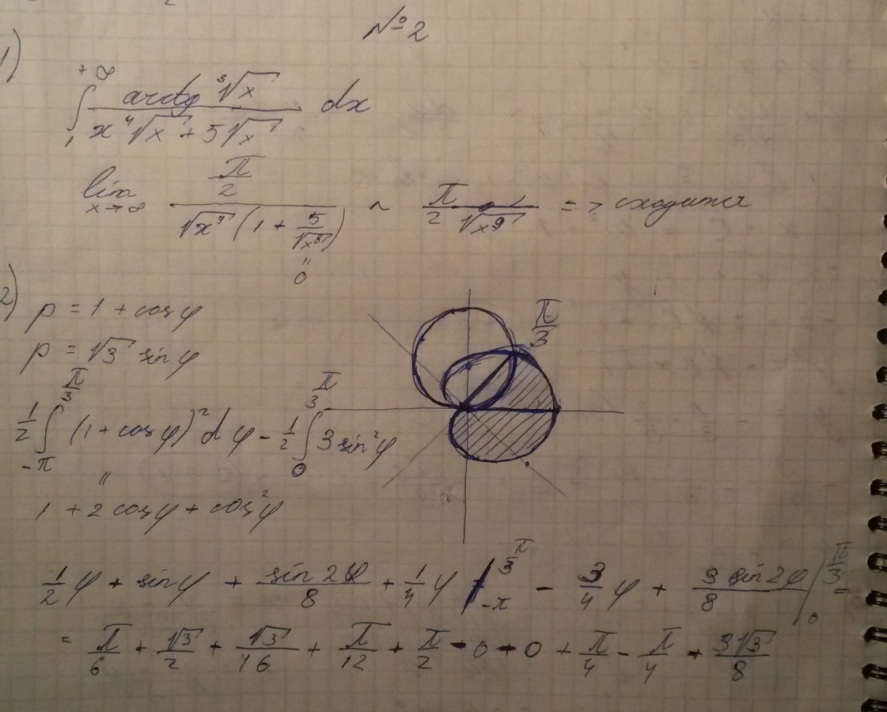 №2
1) ∫₁^{+∞} arctg ³√x / (x ⁴√x + 5√x) dx
lim x→∞ (π/2) / (√x⁹ (1 + 5/√x³)) ~ π/2 1/√x⁹ => сходится
0
2) ρ = 1 + cos φ
ρ = √3 sin φ
π/3
1/2 ∫_{-π}^{π/3} (1 + cos φ)² dφ - 1/2 ∫₀^{π/3} 3 sin² φ
1 + 2 cos φ + cos² φ
1/2 φ + sin φ + sin 2φ/8 + 1/4 φ |_{-π}^{π/3} - 3/4 φ + 3 sin 2φ/8 |₀^{π/3} =
= π/6 + √3/2 + √3/16 + π/12 + π/2 - 0 + 0 + π/4 - π/4 + 3√3/8